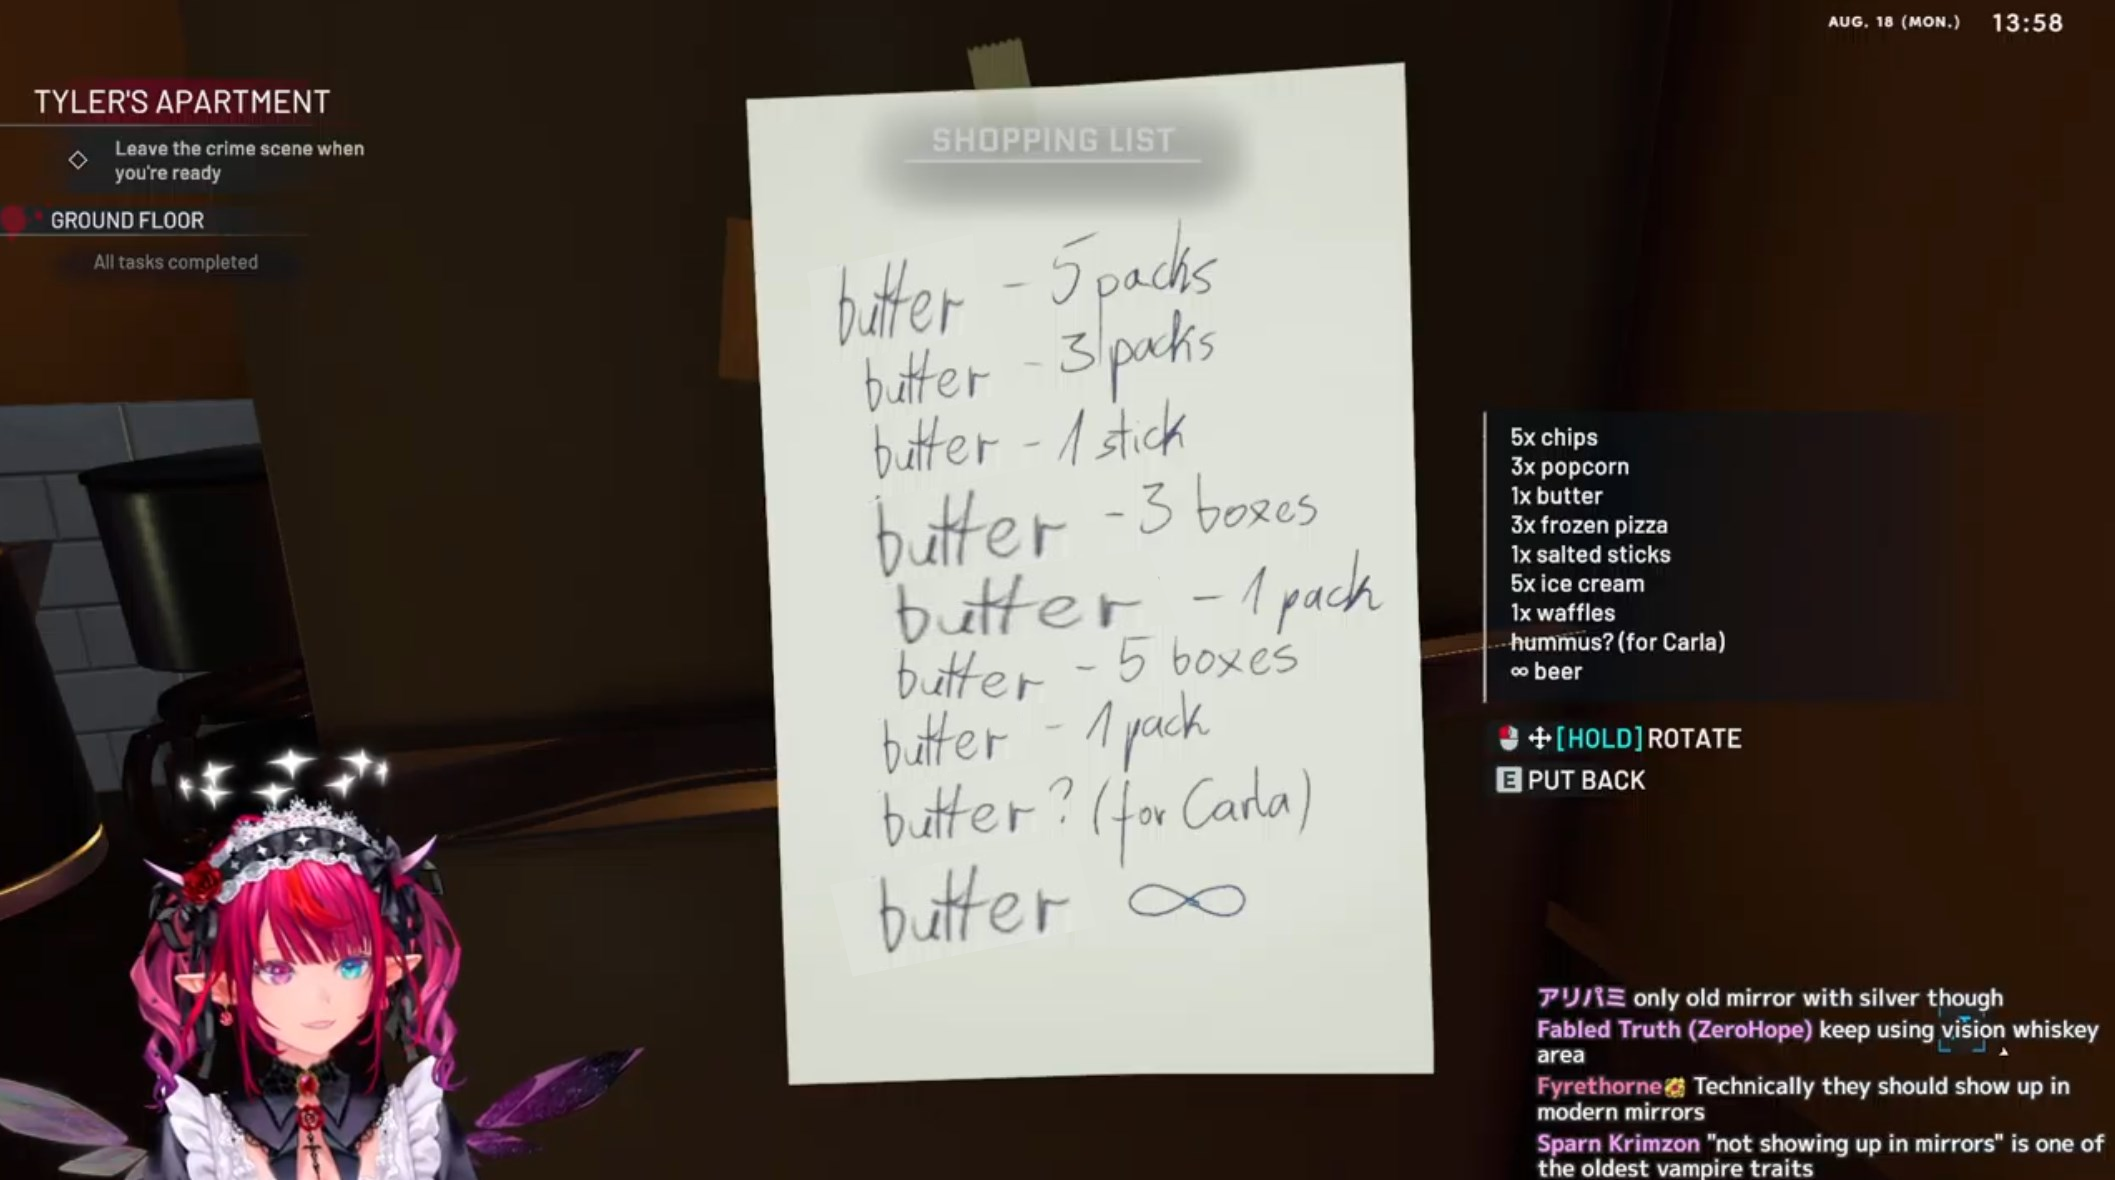 AUG. 18 (MON.) 13:58
TYLER'S APARTMENT
Leave the crime scene when
you're ready
GROUND FLOOR
All tasks completed
SHOPPING LIST
butter - 5 packs
butter - 3 packs
butter - 1 stick
butter - 3 boxes
butter - 1 pack
butter - 5 boxes
butter - 1 pack
butter? (for Carla)
butter ∞
5x chips
3x popcorn
1x butter
3x frozen pizza
1x salted sticks
5x ice cream
1x waffles
hummus? (for Carla)
∞ beer
[HOLD] ROTATE
E PUT BACK
アリパミ only old mirror with silver though
Fabled Truth (ZeroHope) keep using vision whiskey
area
Fyrethorne Technically they should show up in
modern mirrors
Sparn Krimzon "not showing up in mirrors" is one of
the oldest vampire traits